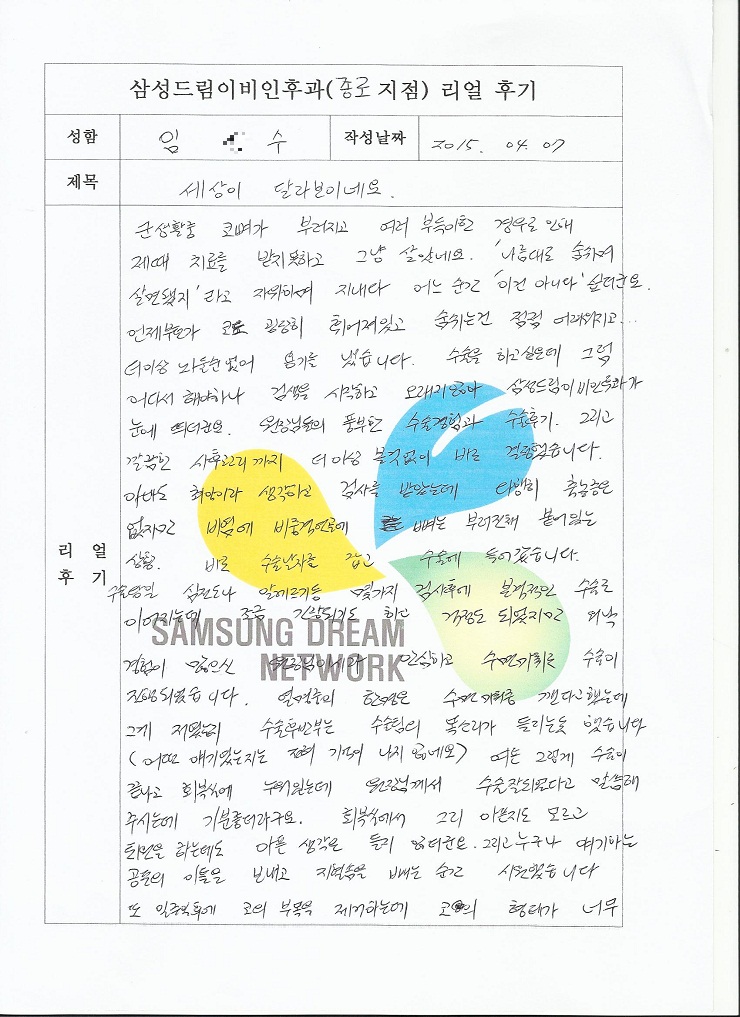 삼성드림이비인후과(종로 지점) 리얼 후기
성함 임 수 작성날짜 2015. 04. 07
제목 세상이 달라보이네요.
리얼 후기
군생활중 코뼈가 부러지고 여러 부득이한 경우로 인해
제때 치료를 받지못하고 그냥 살았네요. '나름대로 숨쉬며
살면됐지'라고 자위하며 지내다 어느 순간 '이건 아니다' 싶더군요.
언제부턴가 코도 굉장히 휘어져있고 숨쉬는건 점점 어려워지고...
더이상 놔둘순없어 용기를 냈습니다. 수술을 하고싶은데 그럼
어디서 해야하나 검색을 시작하고 오래지않아 삼성드림이비인후과가
눈에 띄더군요. 원장님들의 풍부한 수술경험과 수술후기. 그리고
깔끔한 사후관리까지 더이상 볼것없이 바로 결정했습니다.
아마도 휘왕이라 생각하고 검사를 받았는데 다행히 축농증은
없지만 비염에 비중격만곡에 뼈는 부러진채 붙어있는
상황. 바로 수술날짜를 잡고 수술에 들어갔습니다.
수술당일 심전도나 알레르기등 몇가지 검사후에 본격적인 수술로
이어지는데 조금 긴장되기도 하고 걱정도 되었지만 워낙
경험이 많으신 원장님이시라 안심하고 수면마취로 수술이
진행되었습니다. 열명중의 한명은 수면마취중 깬다고했는데
그게 저였는지 수술후반부는 수술팀의 목소리가 들리는듯 했습니다
(어떤 얘기였는지는 전혀 기억이 나지 않네요) 여튼 그렇게 수술이
끝나고 회복실에 누워있는데 원장님께서 수술잘되었다고 말씀해
주시는데 기분좋더라구요. 회복실에서 그리 아픈지도 모르고
퇴원을 하는데도 아픈 생각은 들지 않더군요. 그리고 누구나 얘기하는
공포의 이틀을 보내고 지혈솜을 빼는 순간 시원했습니다
또 일주일후에 코의 부목을 제거하는데 코의 형태가 너무
SAMSUNG DREAM
NETWORK